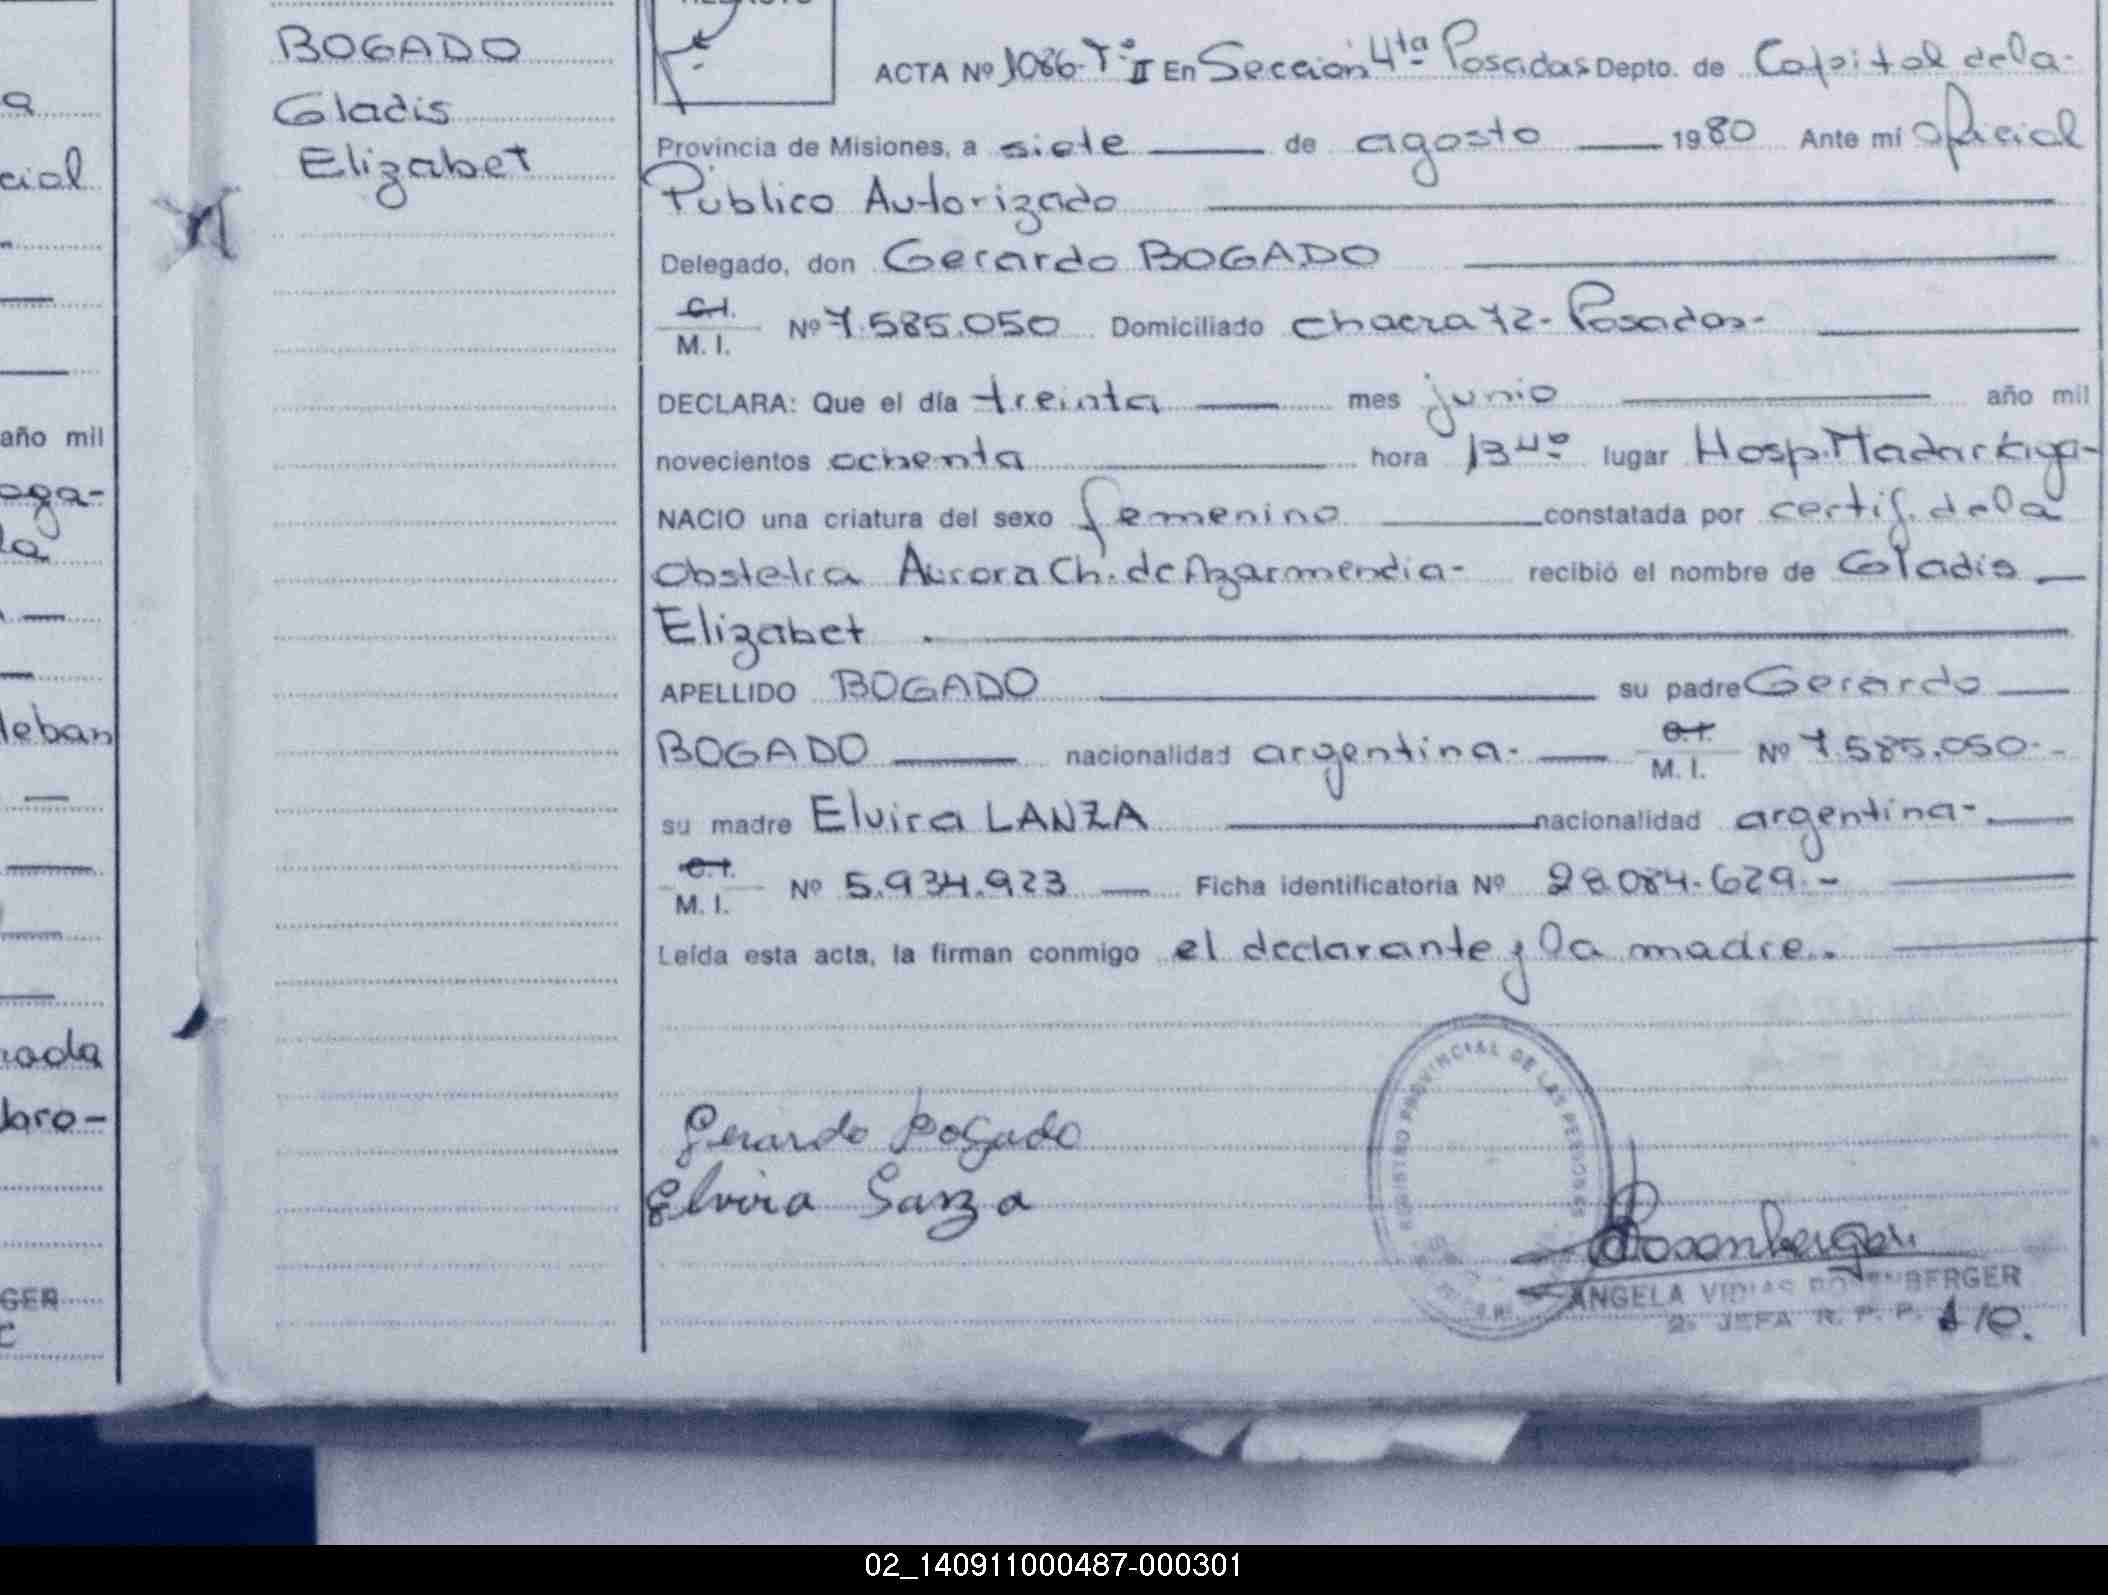 BOGADO
Gladis
Elizabet
ACTA Nº 1086-Tº II En Sección 4ta Posadas Depto. de Capital de la-
Provincia de Misiones, a siete de agosto 1980 Ante mí oficial
Público Autorizado
Delegado, don Gerardo BOGADO
C.I.
M. I. Nº 7.585.050 Domiciliado chacra 72- Posadas-
DECLARA: Que el día treinta mes junio año mil
novecientos ochenta hora 13 40 lugar Hosp. Madariaga-
NACIO una criatura del sexo femenino constatada por certif. de la
Obstetra Aurora Ch. de Azarmendia- recibió el nombre de Gladis
Elizabet .
APELLIDO BOGADO su padre Gerardo
BOGADO nacionalidad argentina- C.I.
M. I. Nº 7.585.050.-
su madre Elvira LANZA nacionalidad argentina-.
C.I.
M. I. Nº 5.934.923 Ficha identificatoria Nº 28.084.629.-
Leída esta acta, la firman conmigo el declarante y la madre..
Gerardo Bogado
Elvira Sanza
REGISTRO PROVINCIAL DE LAS PERSONAS
Rosenberger
ANGELA VIDIAS ROSENBERGER
2ª JEFA R. P. P.
a
cial
año mil
oga-
la
leban
rada
laro-
GER
02_140911000487-000301